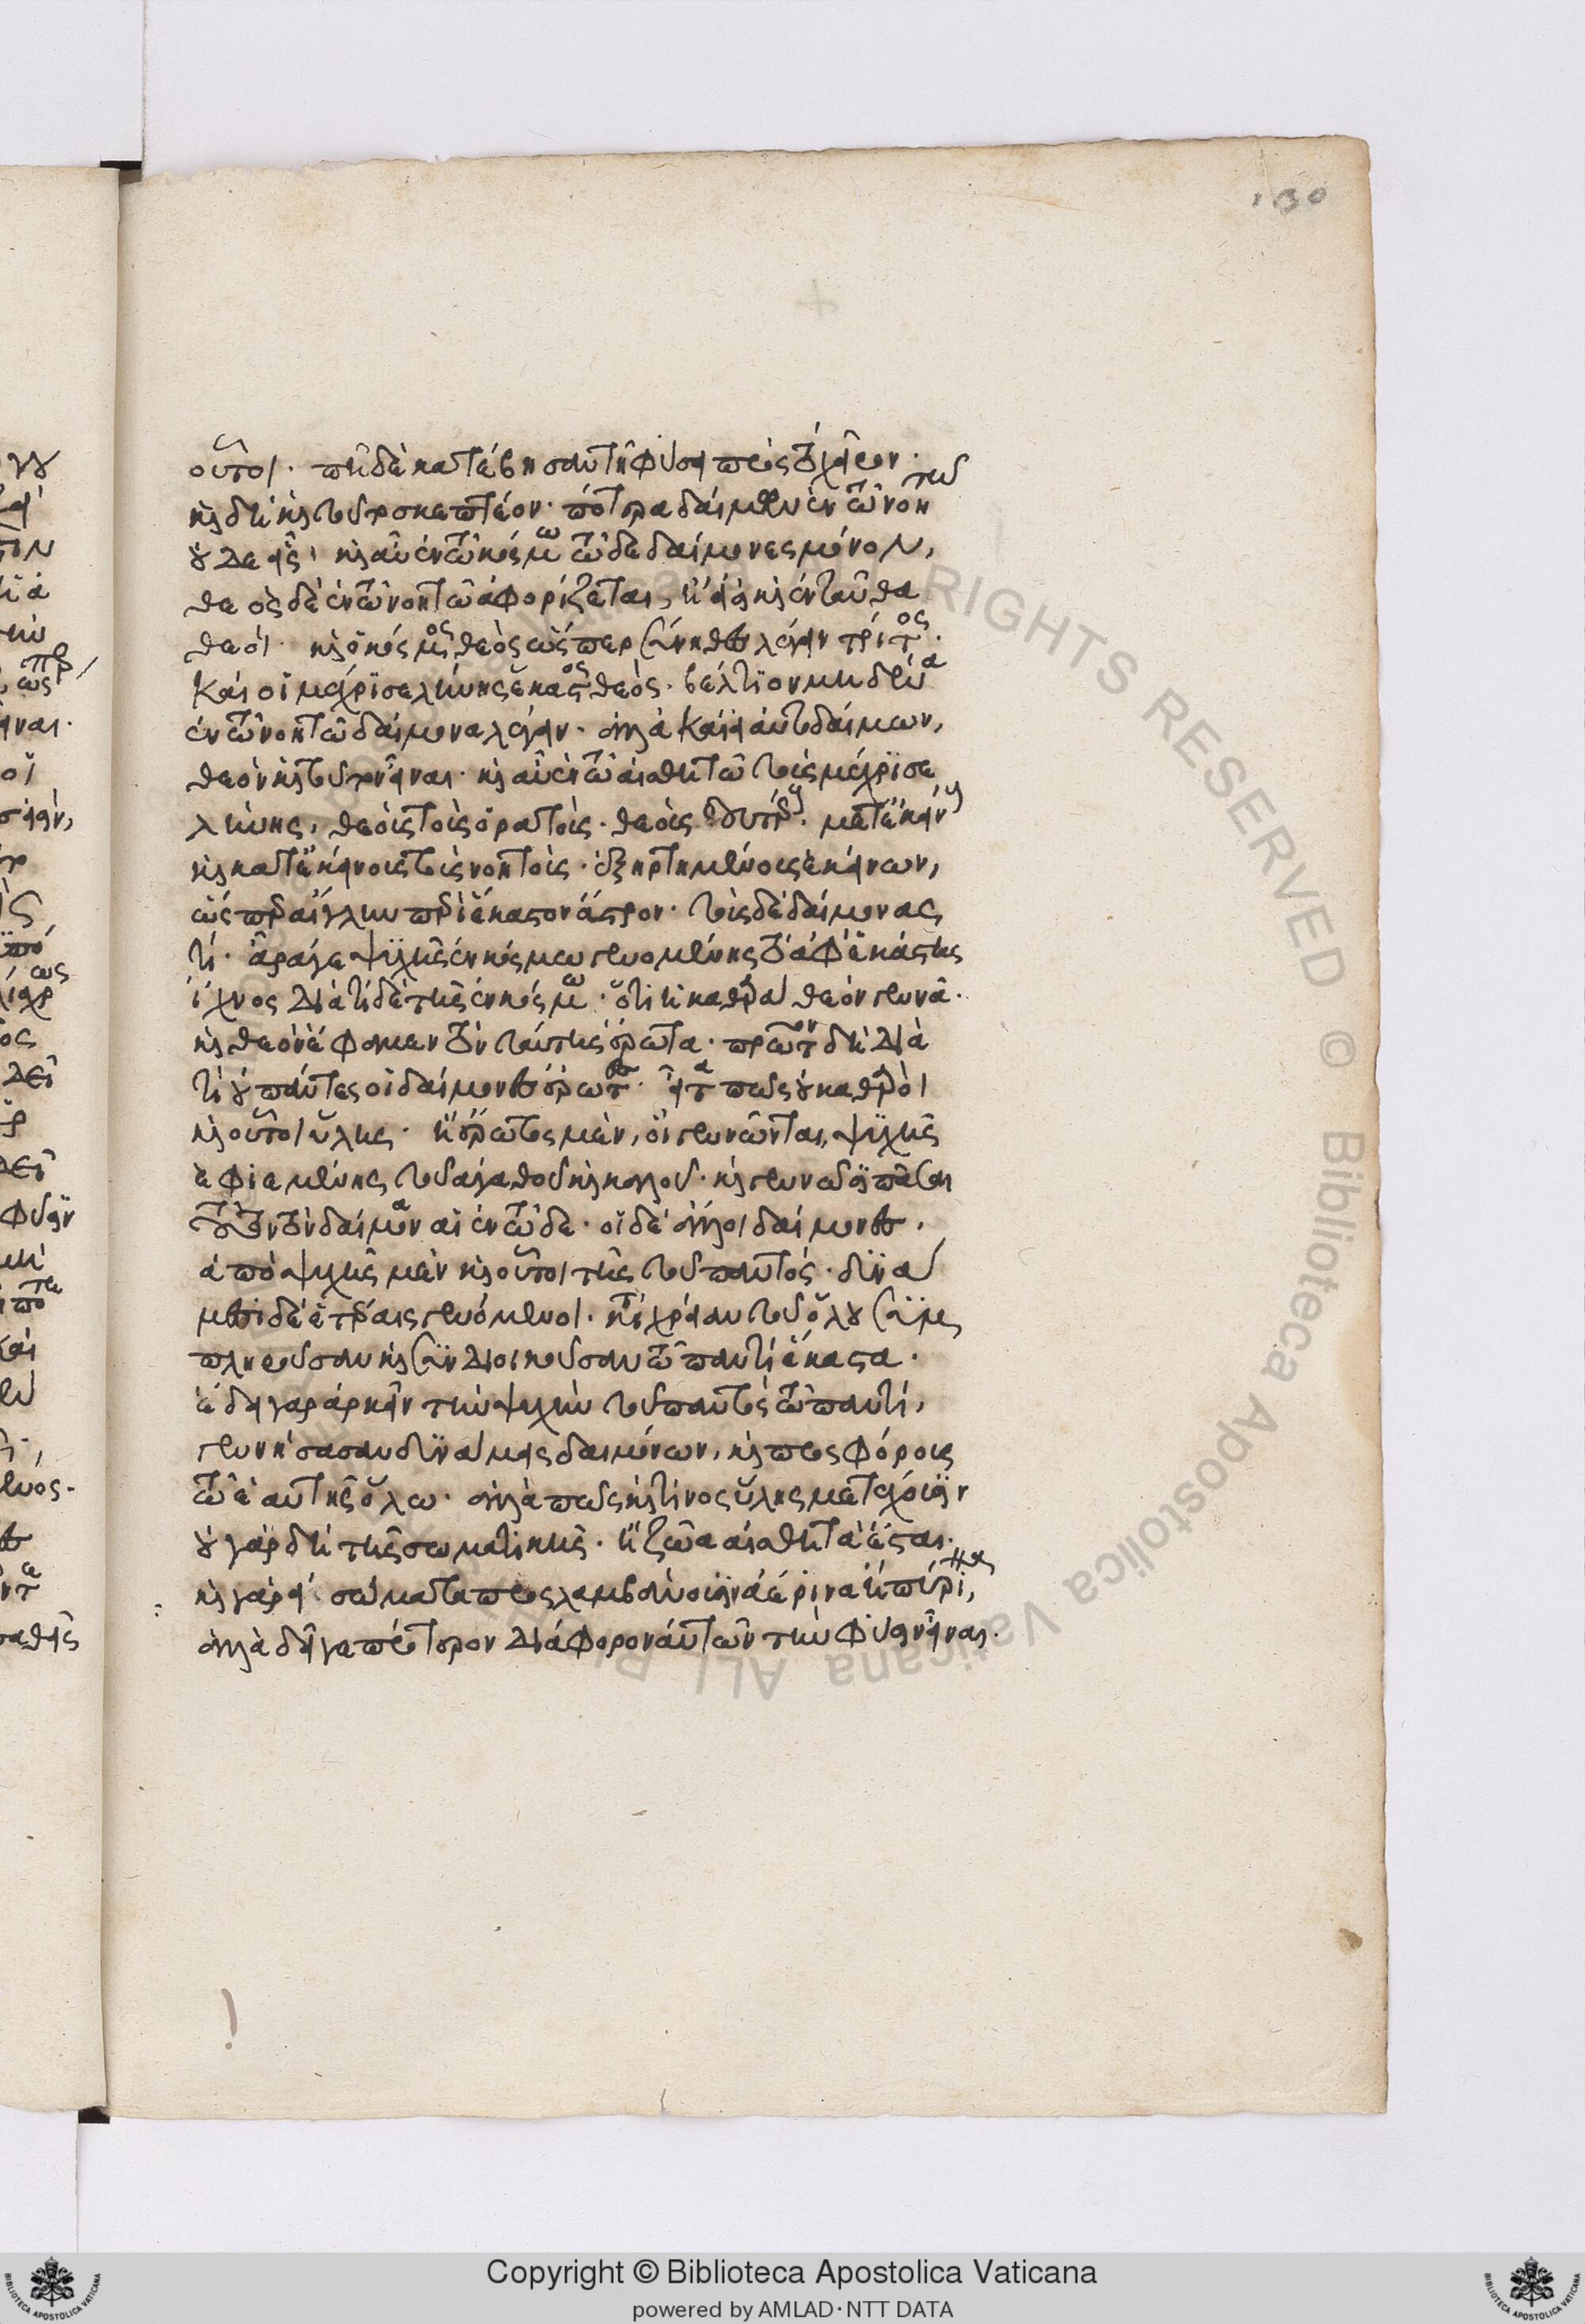 130
οὗτοι. πῆ δὲ κατέβησαν τῇ φύσει πρὸς τὸ χεῖρον.
καὶ δὴ καὶ τοῦτο σκεπτέον. πότερα δαίμων ἐν τῶ νοητῶ
οὐδὲ εἷς, καὶ αὖ ἐν τῶ κόσμω τῶδε δαίμονες μόνον,
θεὸς δὲ ἐν τῶ νοητῶ ἀφορίζεται, ἢ εἰσὶ καὶ ἐνταῦθα
θεοί. καὶ ὁ κόσμος θεὸς ὥσπερ σύνηθες λέγειν τρίτος.
καὶ οἱ μέχρι σελήνης ἕκαστος θεός. βέλτιον μηδένα
ἐν τῶ νοητῶ δαίμονα λέγειν. ἀλλὰ καὶ εἰ αὐτοδαίμων,
θεὸν καὶ τοῦτον εἶναι. καὶ αὖ ἐν τῶ αἰσθητῶ τοὺς μέχρι σε
λήνης, θεοὺς τοὺς ὁρατοὺς. θεοὺς δευτέρους. μετ' ἐκείνους
καὶ κατ' ἐκείνους τοὺς νοητοὺς. ἐξηρτημένους ἐκείνων,
ὥσπερ αἴγλην περὶ ἕκαστον ἄστρον. τοὺς δὲ δαίμονας
τί. ἆρά γε ψυχῆς ἐν κόσμω γενομένης τὸ ἀφ' ἑκάστης
ἴχνος διὰ τί δὲ τῆς ἐν κόσμω. ὅτι ἡ καθαρὰ θεὸν γεννᾶ.
καὶ θεὸν ἔφαμεν τὸν ταύτης ἔρωτα. πρῶτον δὴ διὰ
τί οὐ πάντες οἱ δαίμονες ἔρωτες. εἶτα πῶς οὐ καθαροὶ
καὶ οὗτοι ὕλης. ἢ ἔρωτες μὲν, οἳ γεννῶνται ψυχῆς
ἐφιεμένης τοῦ ἀγαθοῦ καὶ καλοῦ. καὶ γεννῶσι πᾶσαι
τοῦτον τὸν δαίμονα αἱ ἐν τῶδε. οἱ δὲ ἄλλοι δαίμονες.
ἀπὸ ψυχῆς μὲν καὶ οὗτοι τῆς τοῦ παντός. δυνά
μεσι δὲ ἑτέραις γενόμενοι. κατὰ χρείαν τοῦ ὅλου συμ
πληροῦσαν καὶ συνδιοικοῦσαν τῶ παντὶ ἕκαστα.
ἔδει γὰρ ἀρκεῖν τὴν ψυχὴν τοῦ παντὸς τῶ παντί,
γεννήσασαν δυνάμεις δαιμόνων, καὶ προσφόρους
τῶ ἑαυτῆς ὅλω. ἀλλὰ πῶς καὶ τίνος ὕλης μετέχουσιν
οὐ γὰρ δὴ τῆς σωματικῆς. ἢ ζῶα αἰσθητὰ ἔσται.
καὶ γὰρ εἰ σώματα προσλαμβάνουσιν ἀέρινα ἢ πύρινα,
ἀλλὰ δεῖ γε πρότερον διάφορον αὐτῶν τὴν φύσιν εἶναι.
Copyright © Biblioteca Apostolica Vaticana
powered by AMLAD·NTT DATA